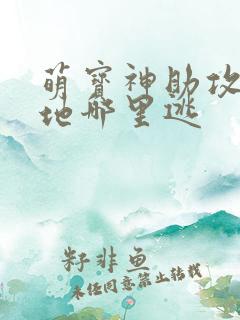 萌宝神助攻
地哪里逃
籽非鱼
未经同意禁止转载